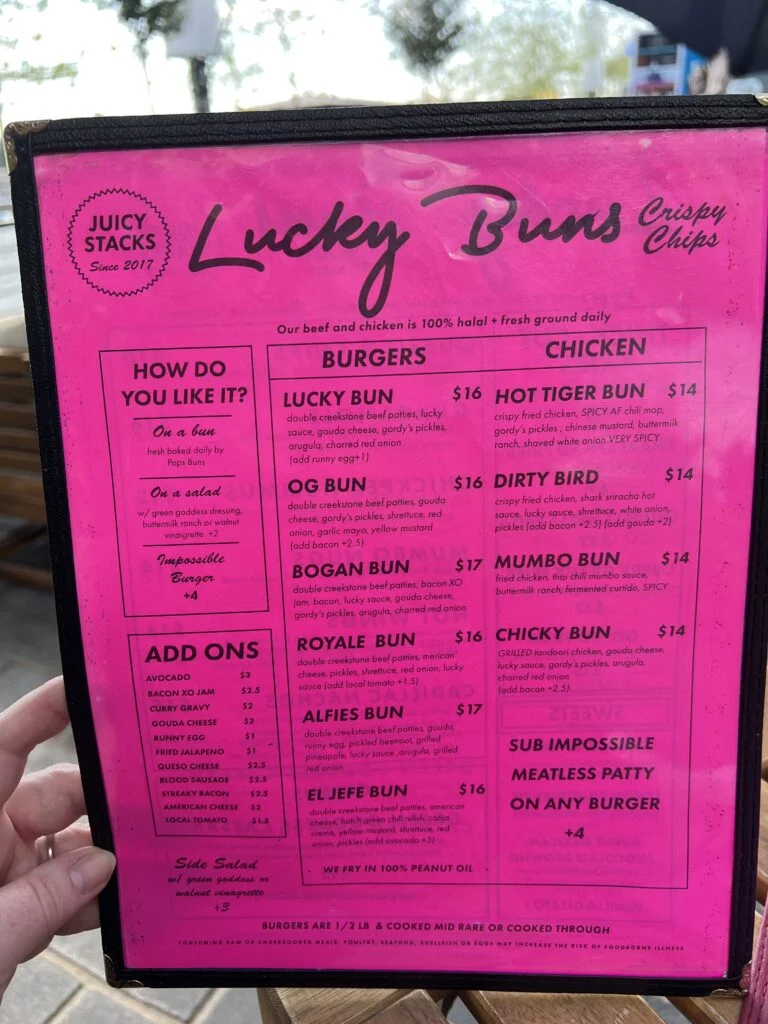 JUICY
STACKS
Since 2017
Lucky Buns
Crispy
Chips
Our beef and chicken is 100% halal + fresh ground daily
HOW DO
YOU LIKE IT?
On a bun
fresh baked daily by
Paps Buns
On a salad
w/ green goddess dressing,
buttermilk ranch or walnut
vinaigrette +2
Impossible
Burger
+4
ADD ONS
AVOCADO $3
BACON XO JAM $2.5
CURRY GRAVY $2
GOUDA CHEESE $2
RUNNY EGG $1
FRIED JALAPENO $1
QUESO CHEESE $2.5
BLOOD SAUSAGE $2.5
STREAKY BACON $2.5
AMERICAN CHEESE $2
LOCAL TOMATO $1.5
Side Salad
w/ green goddess or
walnut vinagrette
+3
BURGERS
LUCKY BUN $16
double creekstone beef patties, lucky
sauce, gouda cheese, gordy's pickles,
arugula, charred red onion
(add runny egg+1)
OG BUN $16
double creekstone beef patties, gouda
cheese, gordy's pickles, shrettuce, red
onion, garlic mayo, yellow mustard
(add bacon +2.5)
BOGAN BUN $17
double creekstone beef patties, bacon XO
jam, bacon, lucky sauce, gouda cheese,
gordy's pickles, arugula, charred red onion
ROYALE BUN $16
double creekstone beef patties, merican'
cheese, pickles, shrettuce, red onion, lucky
sauce (add local tomato +1.5)
ALFIES BUN $17
double creekstone beef patties, gouda,
runny egg, pickled beetroot, grilled
pineapple, lucky sauce ,arugula, grilled
red onion
EL JEFE BUN $16
double creekstone beef patties, american
cheese, hatch green chili relish, cotija
crema, yellow mustard, shrettuce, red
onion, pickles (add avocado +3)
WE FRY IN 100% PEANUT OIL
CHICKEN
HOT TIGER BUN $14
crispy fried chicken, SPICY AF chili mop,
gordy's pickles , chinese mustard, buttermilk
ranch, shaved white onion VERY SPICY
DIRTY BIRD $14
crispy fried chicken, shark sriracha hot
sauce, lucky sauce, shrettuce, white onion,
pickles (add bacon +2.5) (add gouda +2)
MUMBO BUN $14
fried chicken, thai chili mumbo sauce,
buttermilk ranch, fermented curtido, SPICY
CHICKY BUN $14
GRILLED tandoori chicken, gouda cheese,
lucky sauce, gordy's pickles, arugula,
charred red onion
(add bacon +2.5)
SUB IMPOSSIBLE
MEATLESS PATTY
ON ANY BURGER
+4
BURGERS ARE 1/2 LB & COOKED MID RARE OR COOKED THROUGH
CONSUMING RAW OR UNDERCOOKED MEATS, POULTRY, SEAFOOD, SHELLFISH OR EGGS MAY INCREASE THE RISK OF FOODBORNE ILLNESS